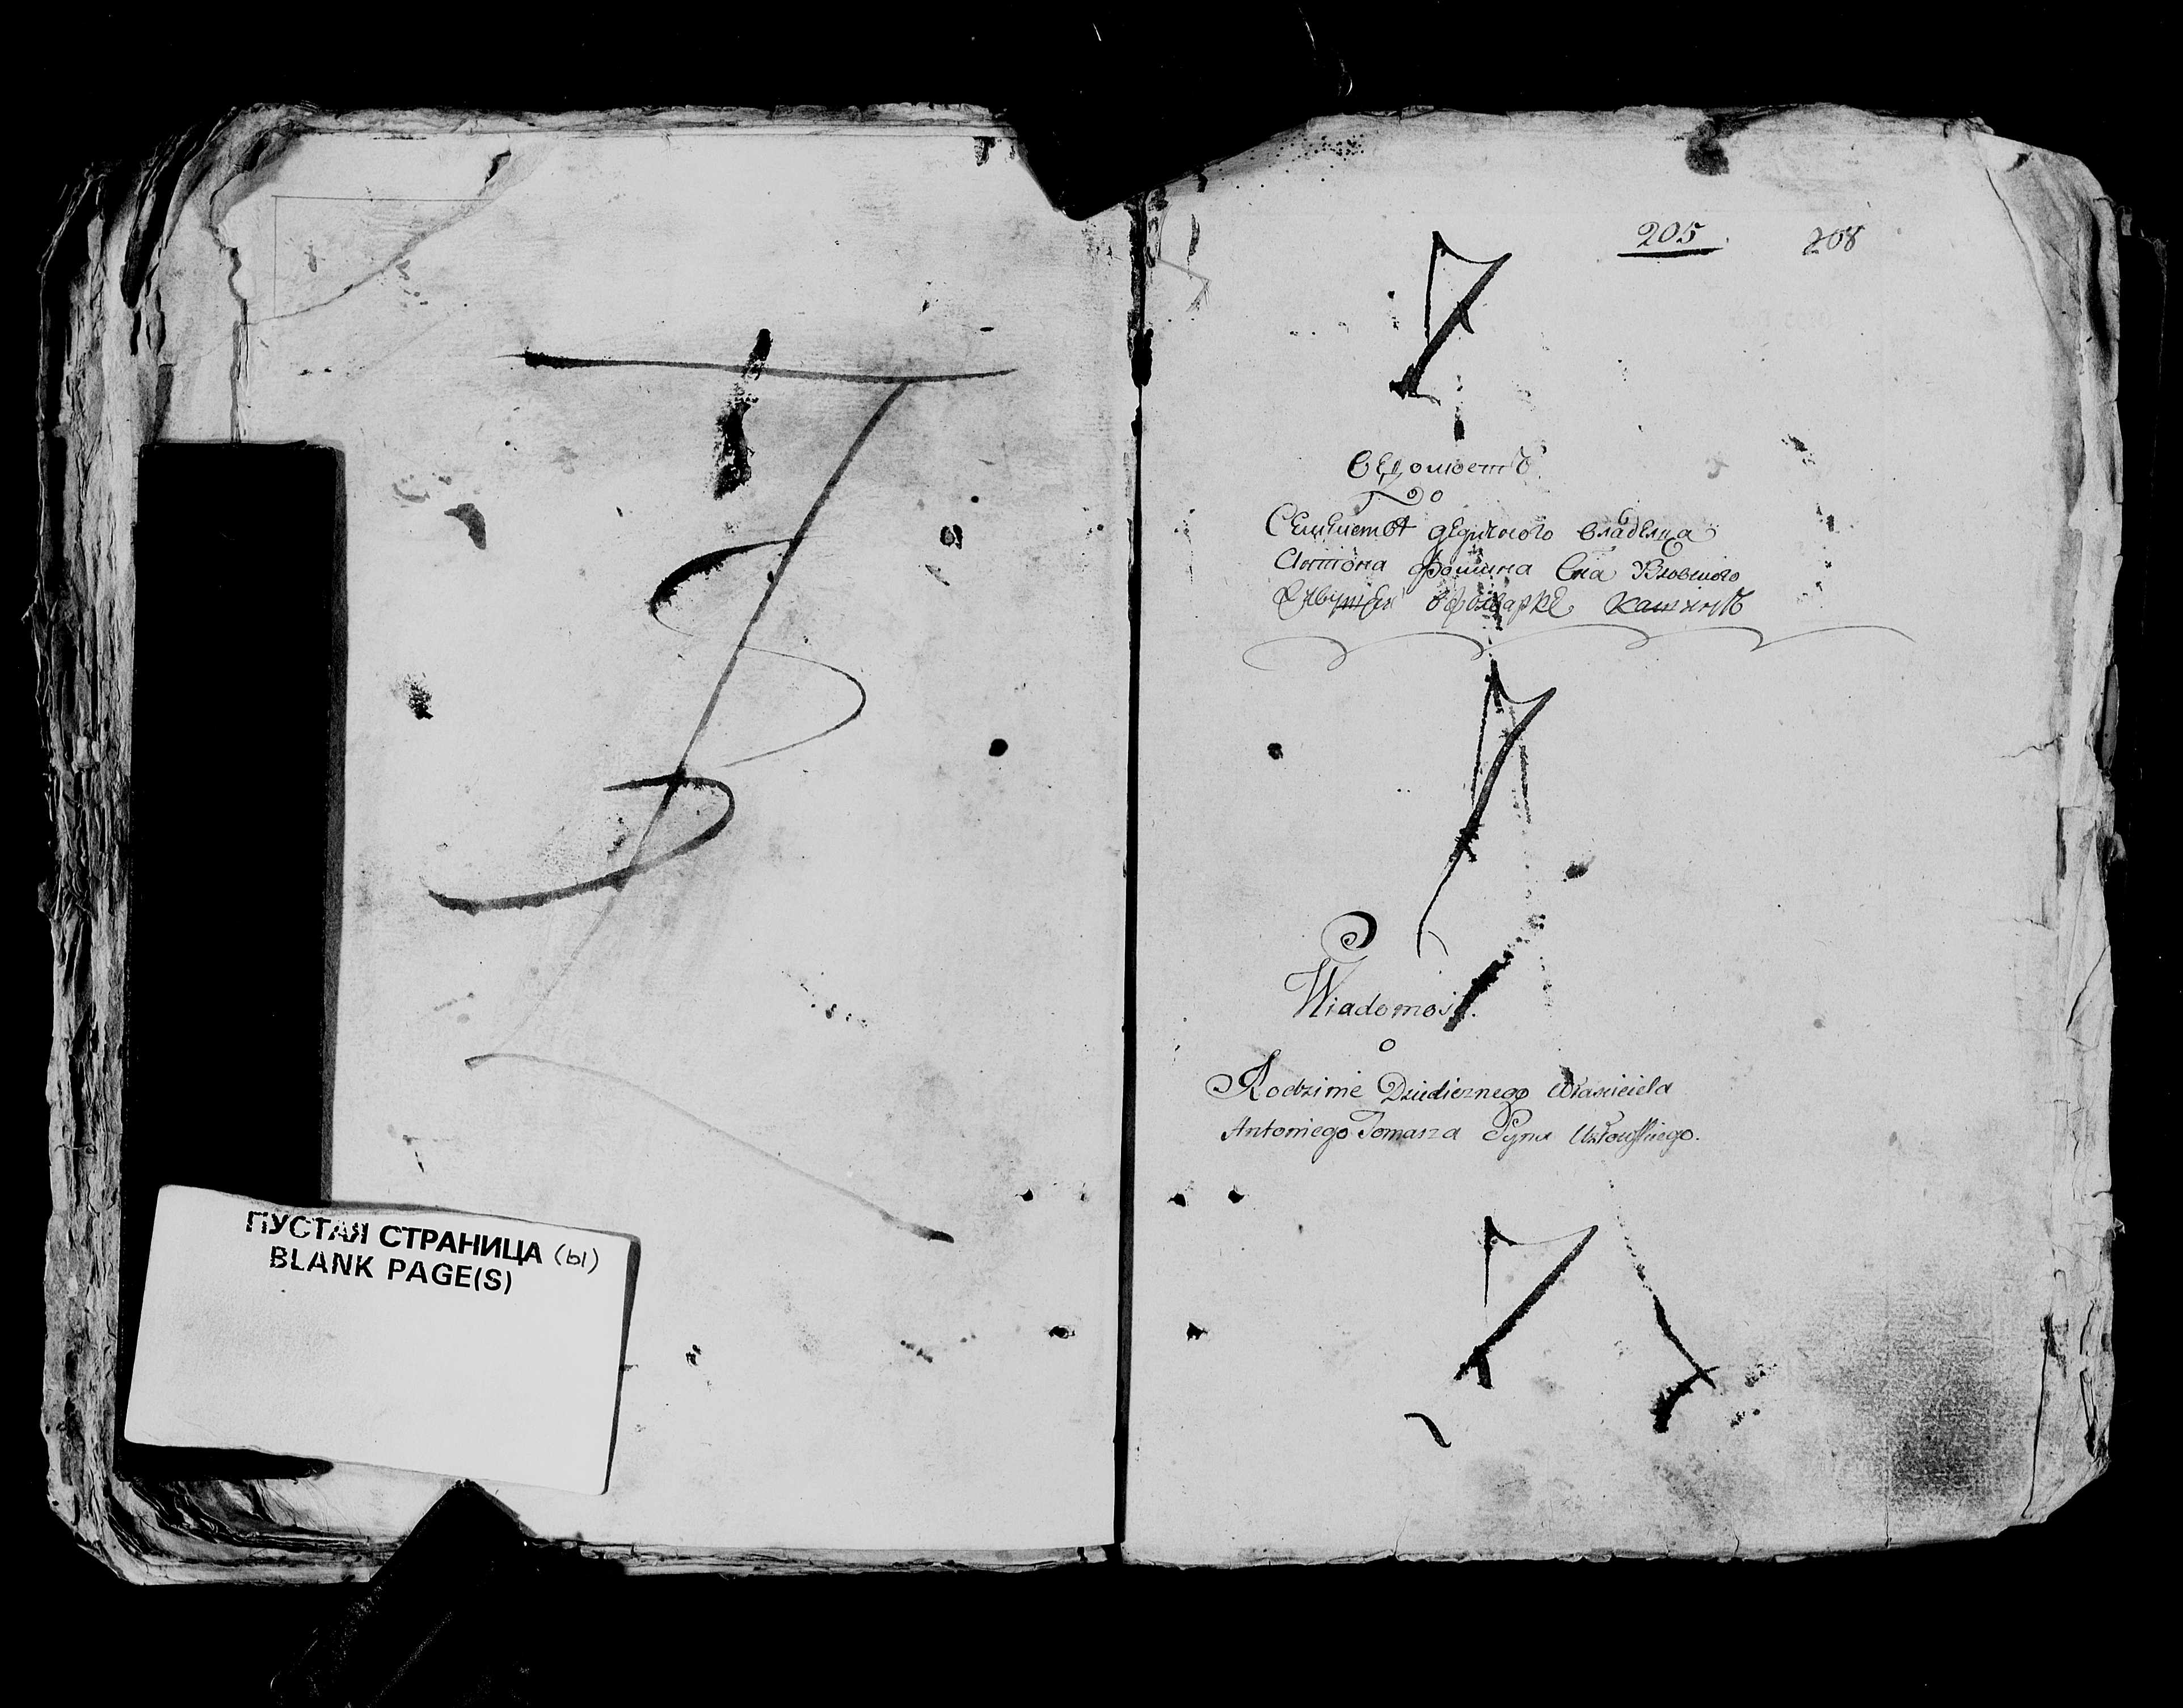 ПУСТАЯ СТРАНИЦА (ы)
BLANK PAGE(S)
205 208
Ведомость
о
Семействе дедичного владелца
Антона Фомина Сна
в фолварке
Wiadomość
o
Rodzinie Dziedicznego Własciciela
Antoniego Tomasza Syna Uzłowskiego.